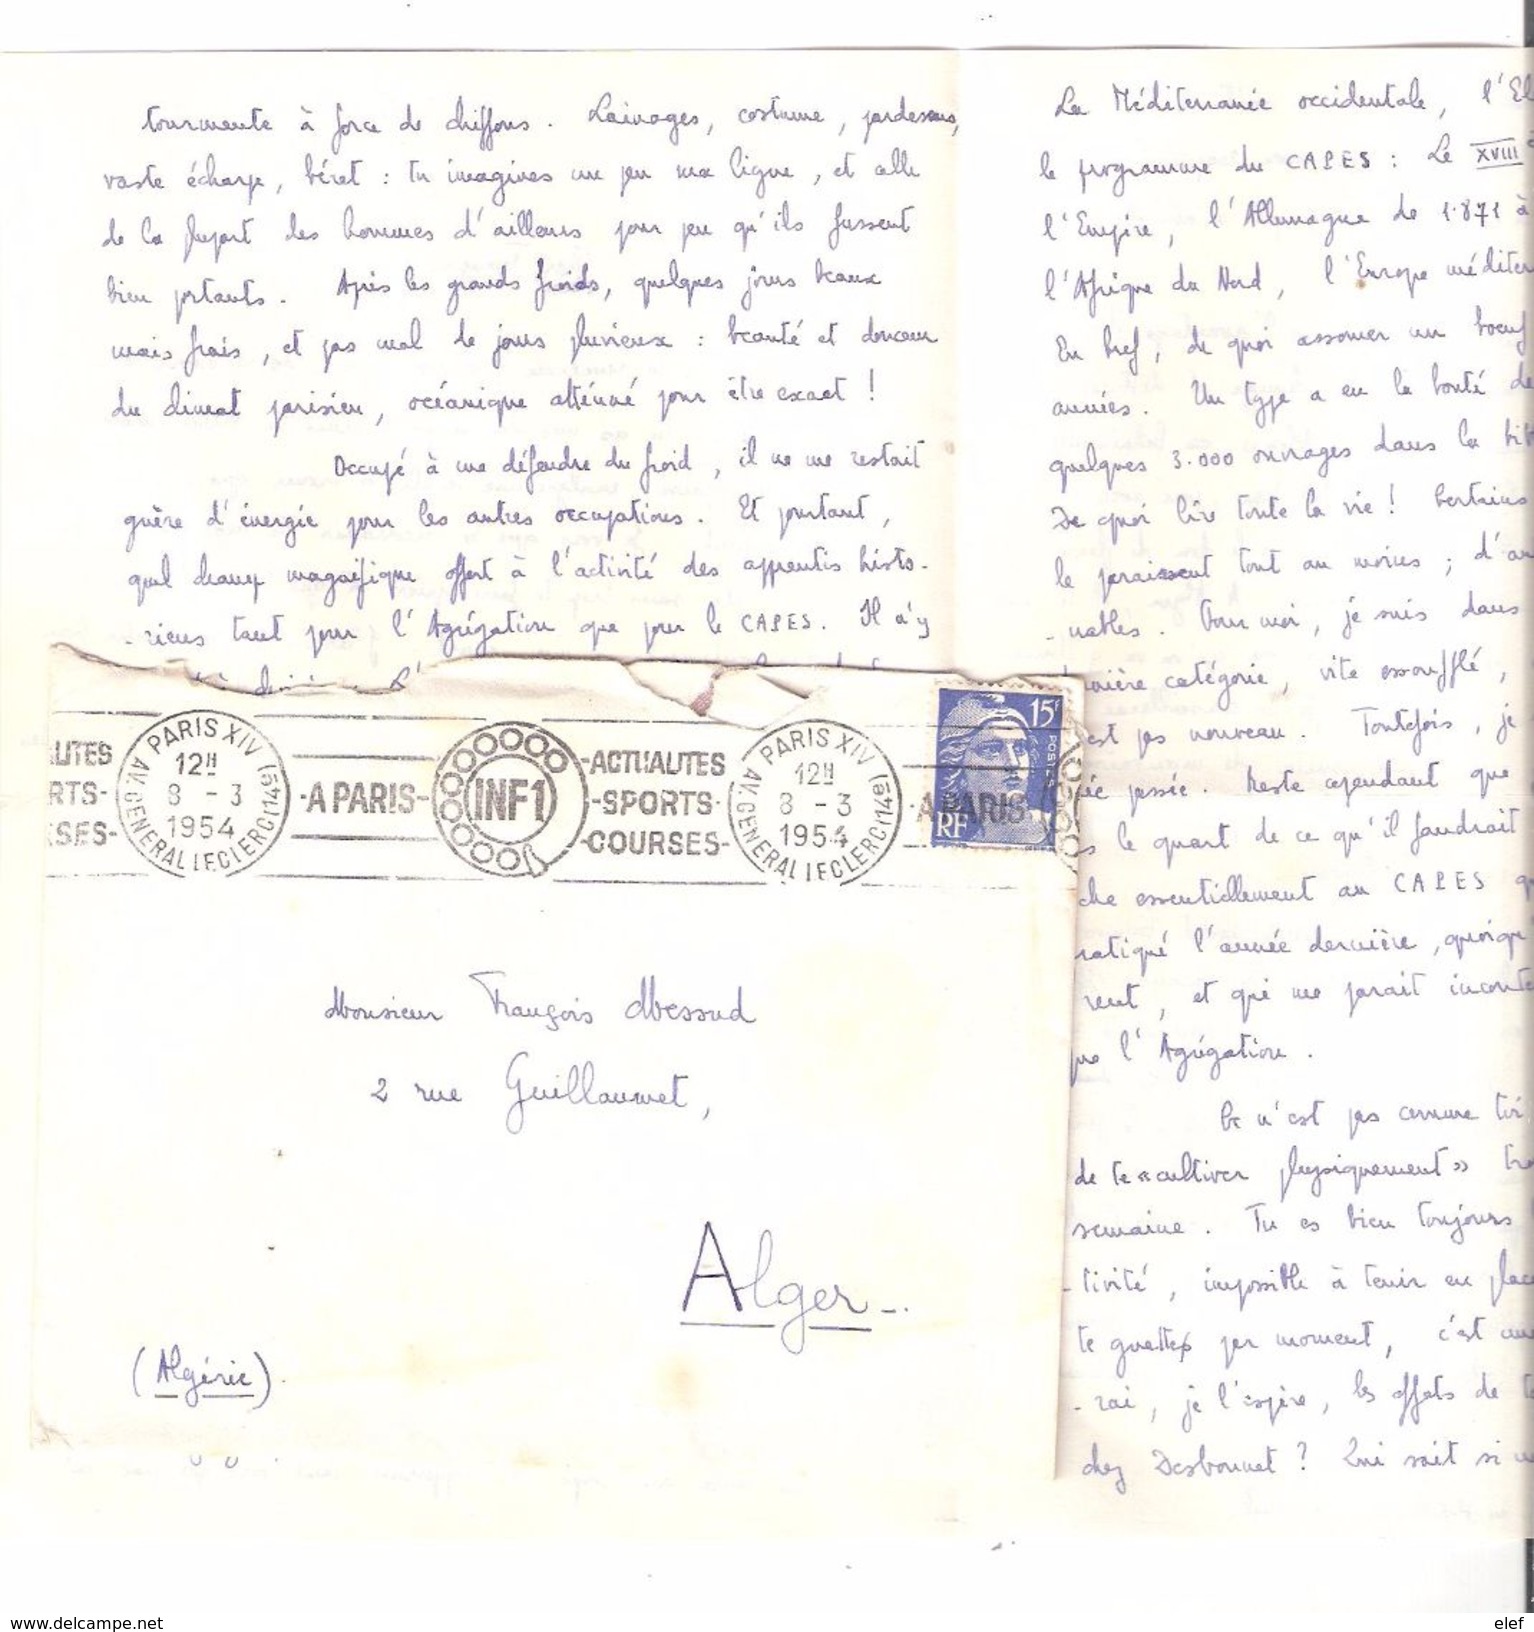 tourmente à force de chiffons. Lainages, costume, pardessus,
vaste écharpe, béret : tu imagines un peu ma ligne, et celle
de la plupart des hommes d'ailleurs pour peu qu'ils fussent
bien portants. Après les grands froids, quelques jours beaux
mais frais, et pas mal de jours pluvieux : beauté et douceur
du climat parisien, océanique atténué pour être exact !
Occupé à me défendre du froid, il ne me restait
guère d'énergie pour les autres occupations. Et pourtant,
quel champ magnifique offert à l'activité des apprentis histo-
-riens tant pour l'Agrégation que pour le CAPES. Il a'y
La Méditerranée occidentale, l'El
le programme du CAPES : Le XVIII
l'Empire, l'Allemagne de 1.871 à
l'Afrique du Nord, l'Europe méditer
En bref, de quoi assomer un boeuf
années. Un type a eu la bonté de
quelques 3.000 ouvrages dans la bib
De quoi lire toute la vie ! Certains
le paraissent tout au moins ; d'au
-nables. Pour moi, je suis dans
catégorie, vite essoufflé,
est pas nouveau. Toutefois, je
passée. Reste cependant que
s le quart de ce qu'il faudrait
che essentiellement au CAPES q
ratiqué l'année dernière, quoiqu'
rent, et qui me parait inconte
que l'Agrégation.
Ce n'est pas comme toi
de te «cultiver physiquement» tro
semaine. Tu es bien toujours
-tivité, impossible à tenir en place
te guettes par moment, c'est une
-rai, je l'espère, les effets de t
chez Desbonnet ? Qui sait si
UALITES
RTS-
RSES-
PARIS XIV
12H
8 - 3
1954
AV. GENERAL LECLERC (14e)
-A PARIS-
INF1
-ACTUALITES
-SPORTS-
-COURSES-
PARIS XIV
12H
8 - 3
1954
AV. GENERAL LECLERC (14e)
-A PARIS
15F
POSTES
RF
Monsieur François Messud
2 rue Guillaumet,
Alger_.
(Algérie).
www.delcampe.net
elef